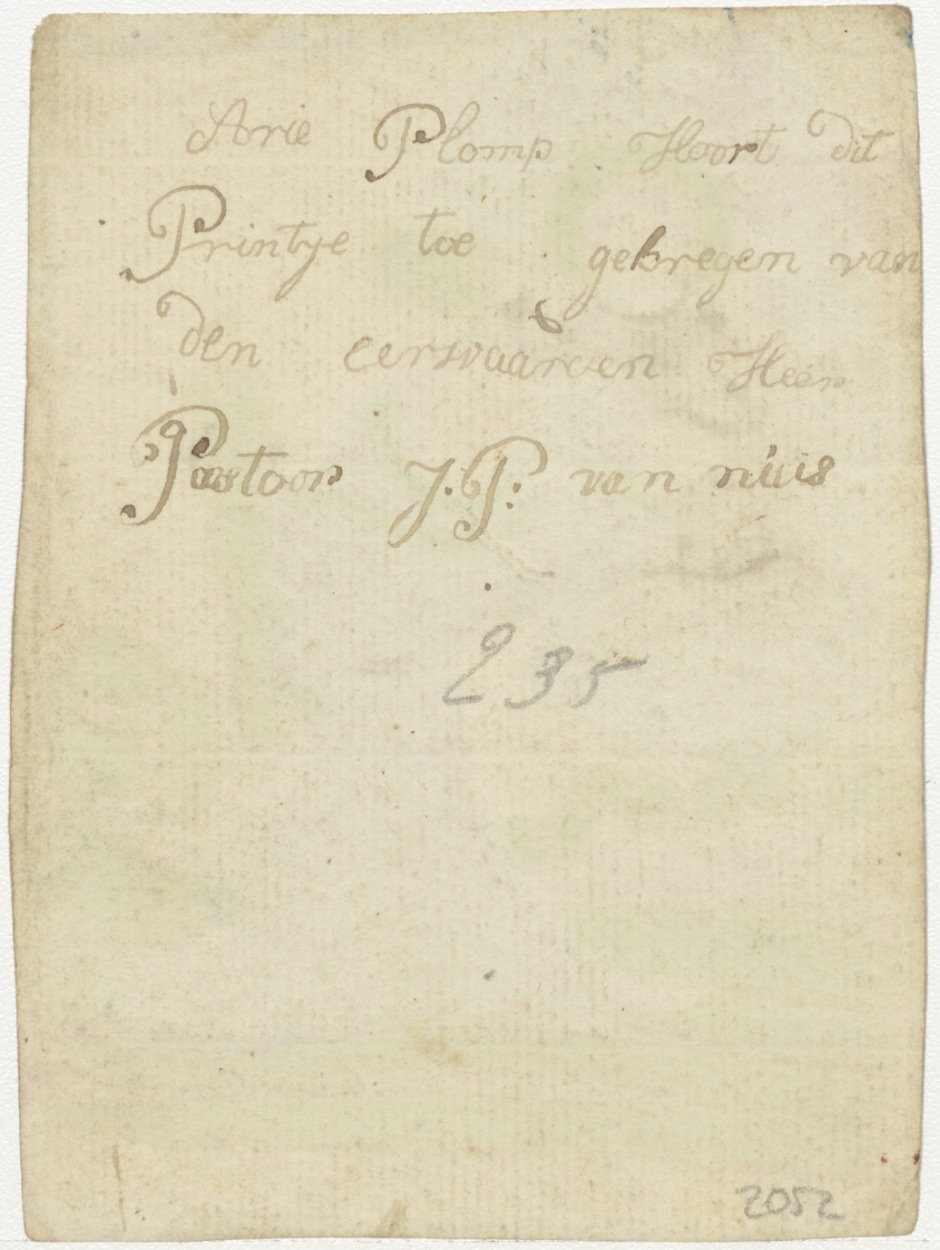 Arie Plomp Hoort dit
Printje toe gekregen van
den eerswaarden Heer
Pastoor J.P. van nuis
235
2052